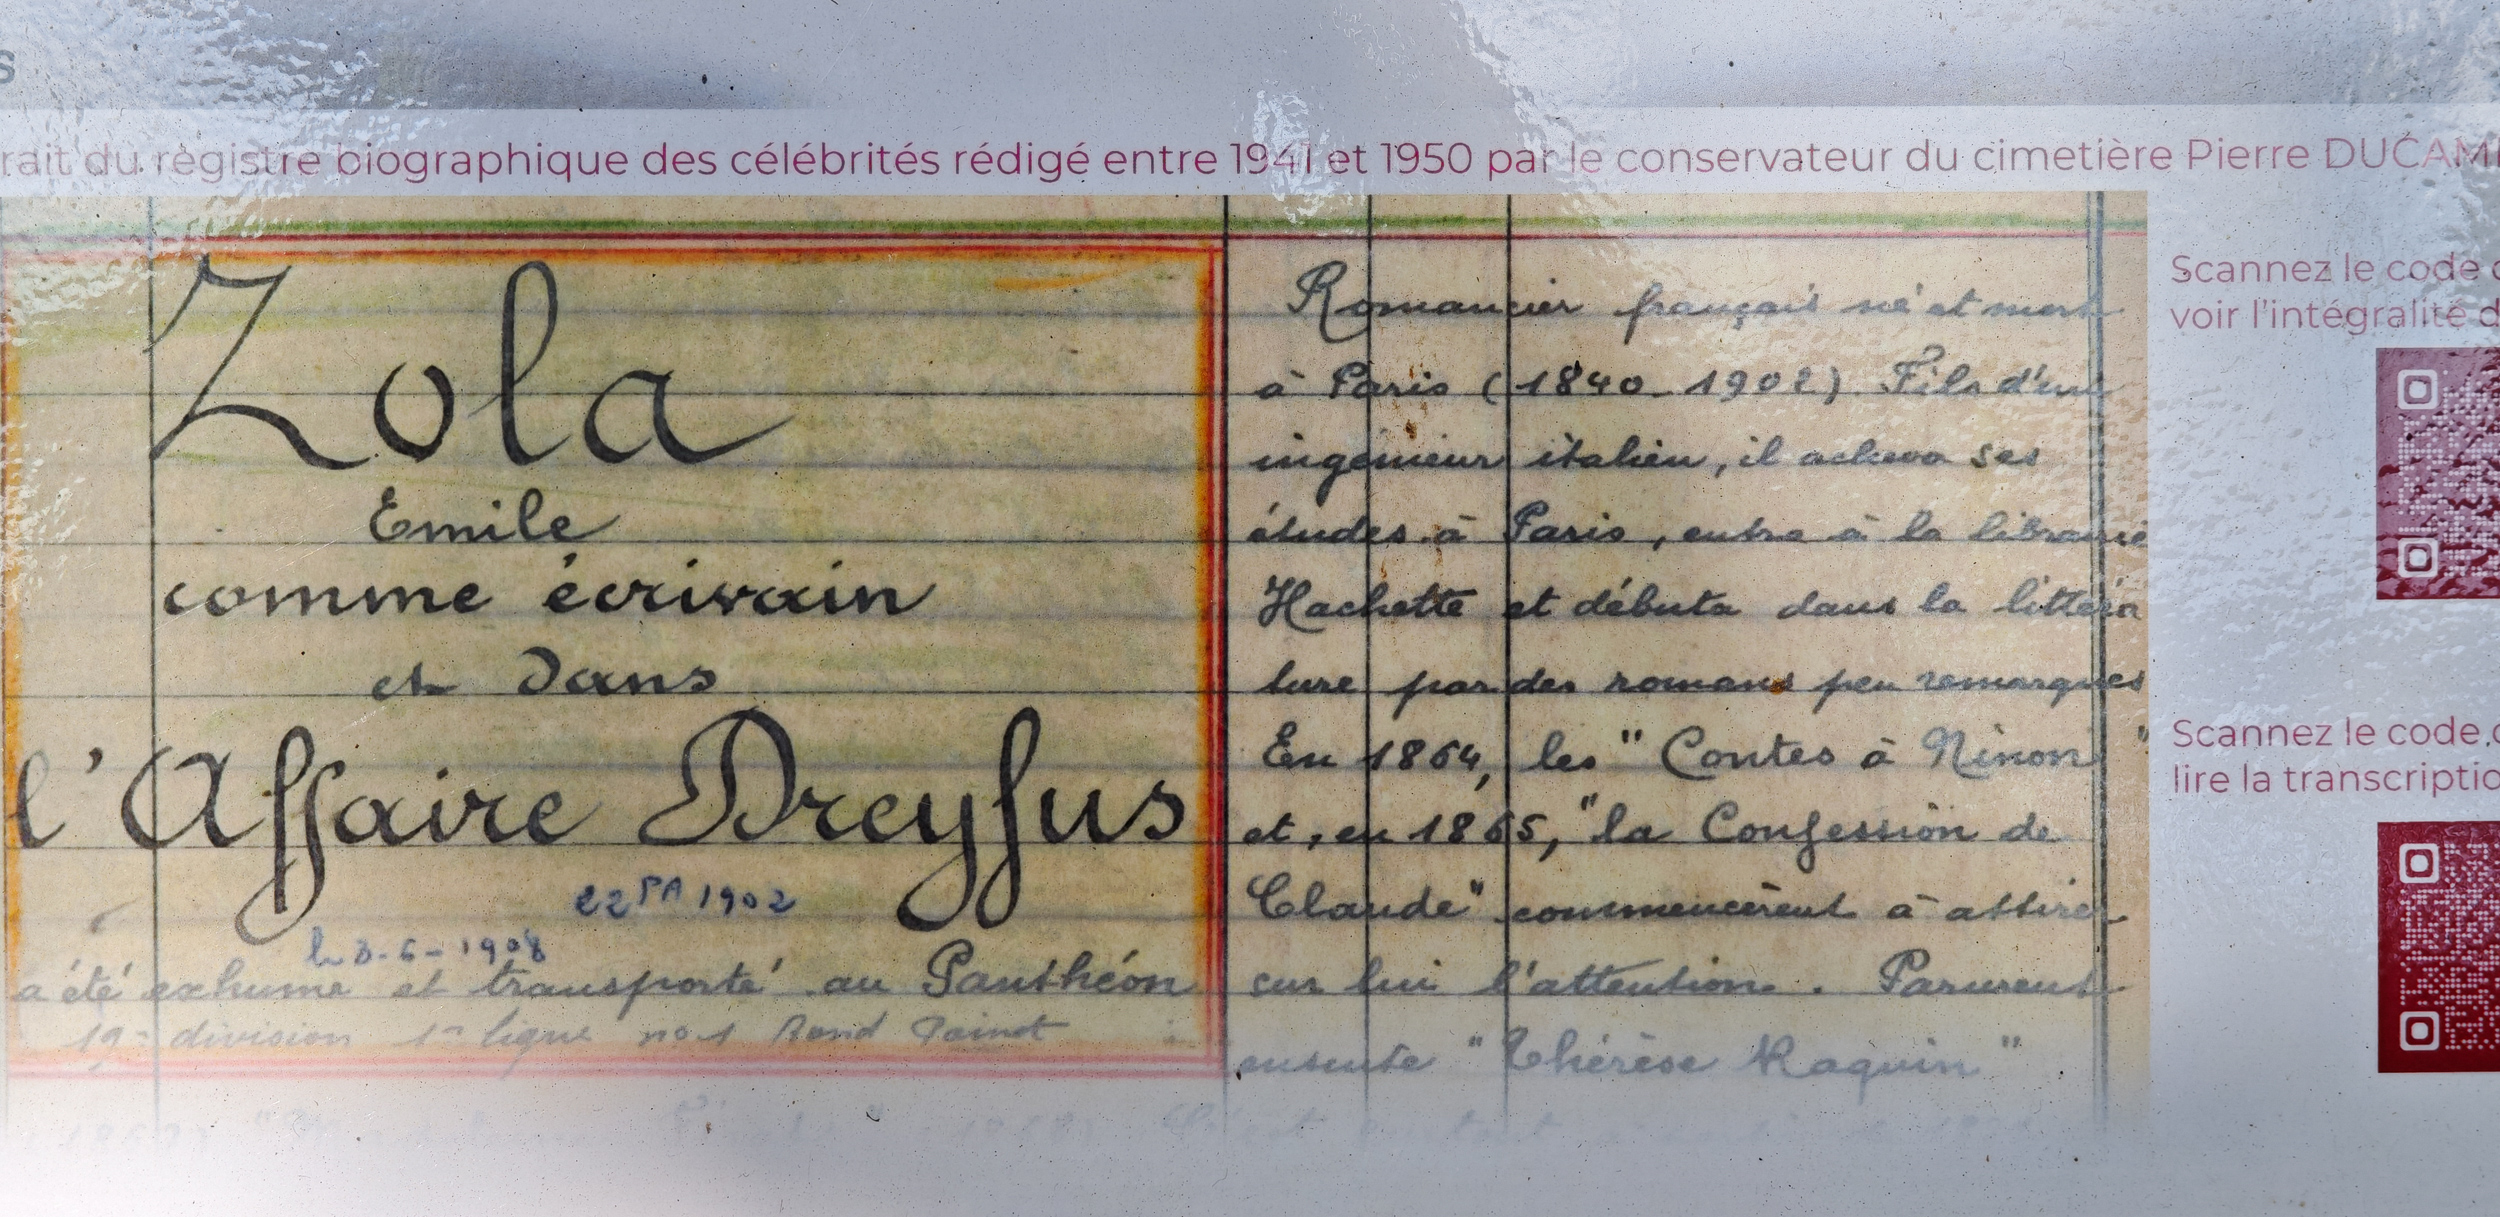 rait du registre biographique des célébrités rédigé entre 1941 et 1950 par le conservateur du cimetière Pierre DUCAM
Zola
Emile
comme écrivain
et dans
l'Affaire Dreyfus
22 PA 1902
le 3-6-1908
a été exhumé et transporté au Panthéon
19e division 1re ligne no 1 Rond Point
Romancier français né et mort
à Paris (1840-1902) Fils d'un
ingénieur italien, il acheva ses
études à Paris, entra à la librairie
Hachette et débuta dans la littéra
ture par des romans peu remarqués
En 1864, les "Contes à Ninon"
et, en 1865, "la Confession de
Claude" commencèrent à attirer
sur lui l'attention. Parurent
ensuite "Thérèse Raquin"
Scannez le code
voir l'intégralité d
Scannez le code
lire la transcriptio